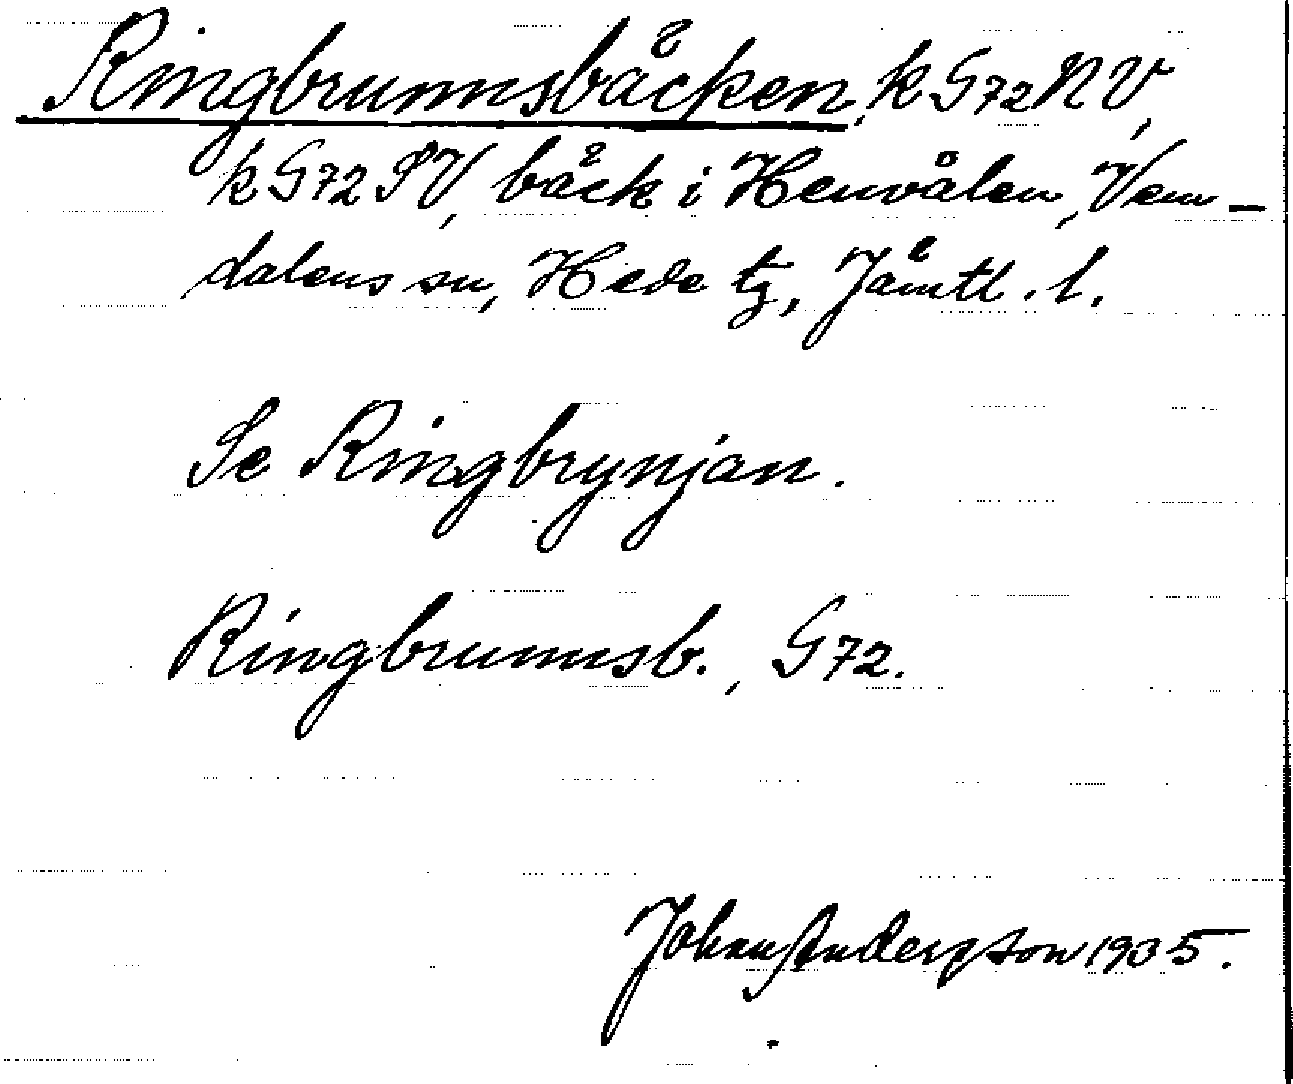 Ringbrunnsbäcken, k G72 NV,
k G72 SV, bäck i Henvålen, Vem-
dalens sn, Hede tg, Jämtl. l.
Se Ringbrynjan.
Ringbrunnsb., G72.
Johan Andersson 1935.